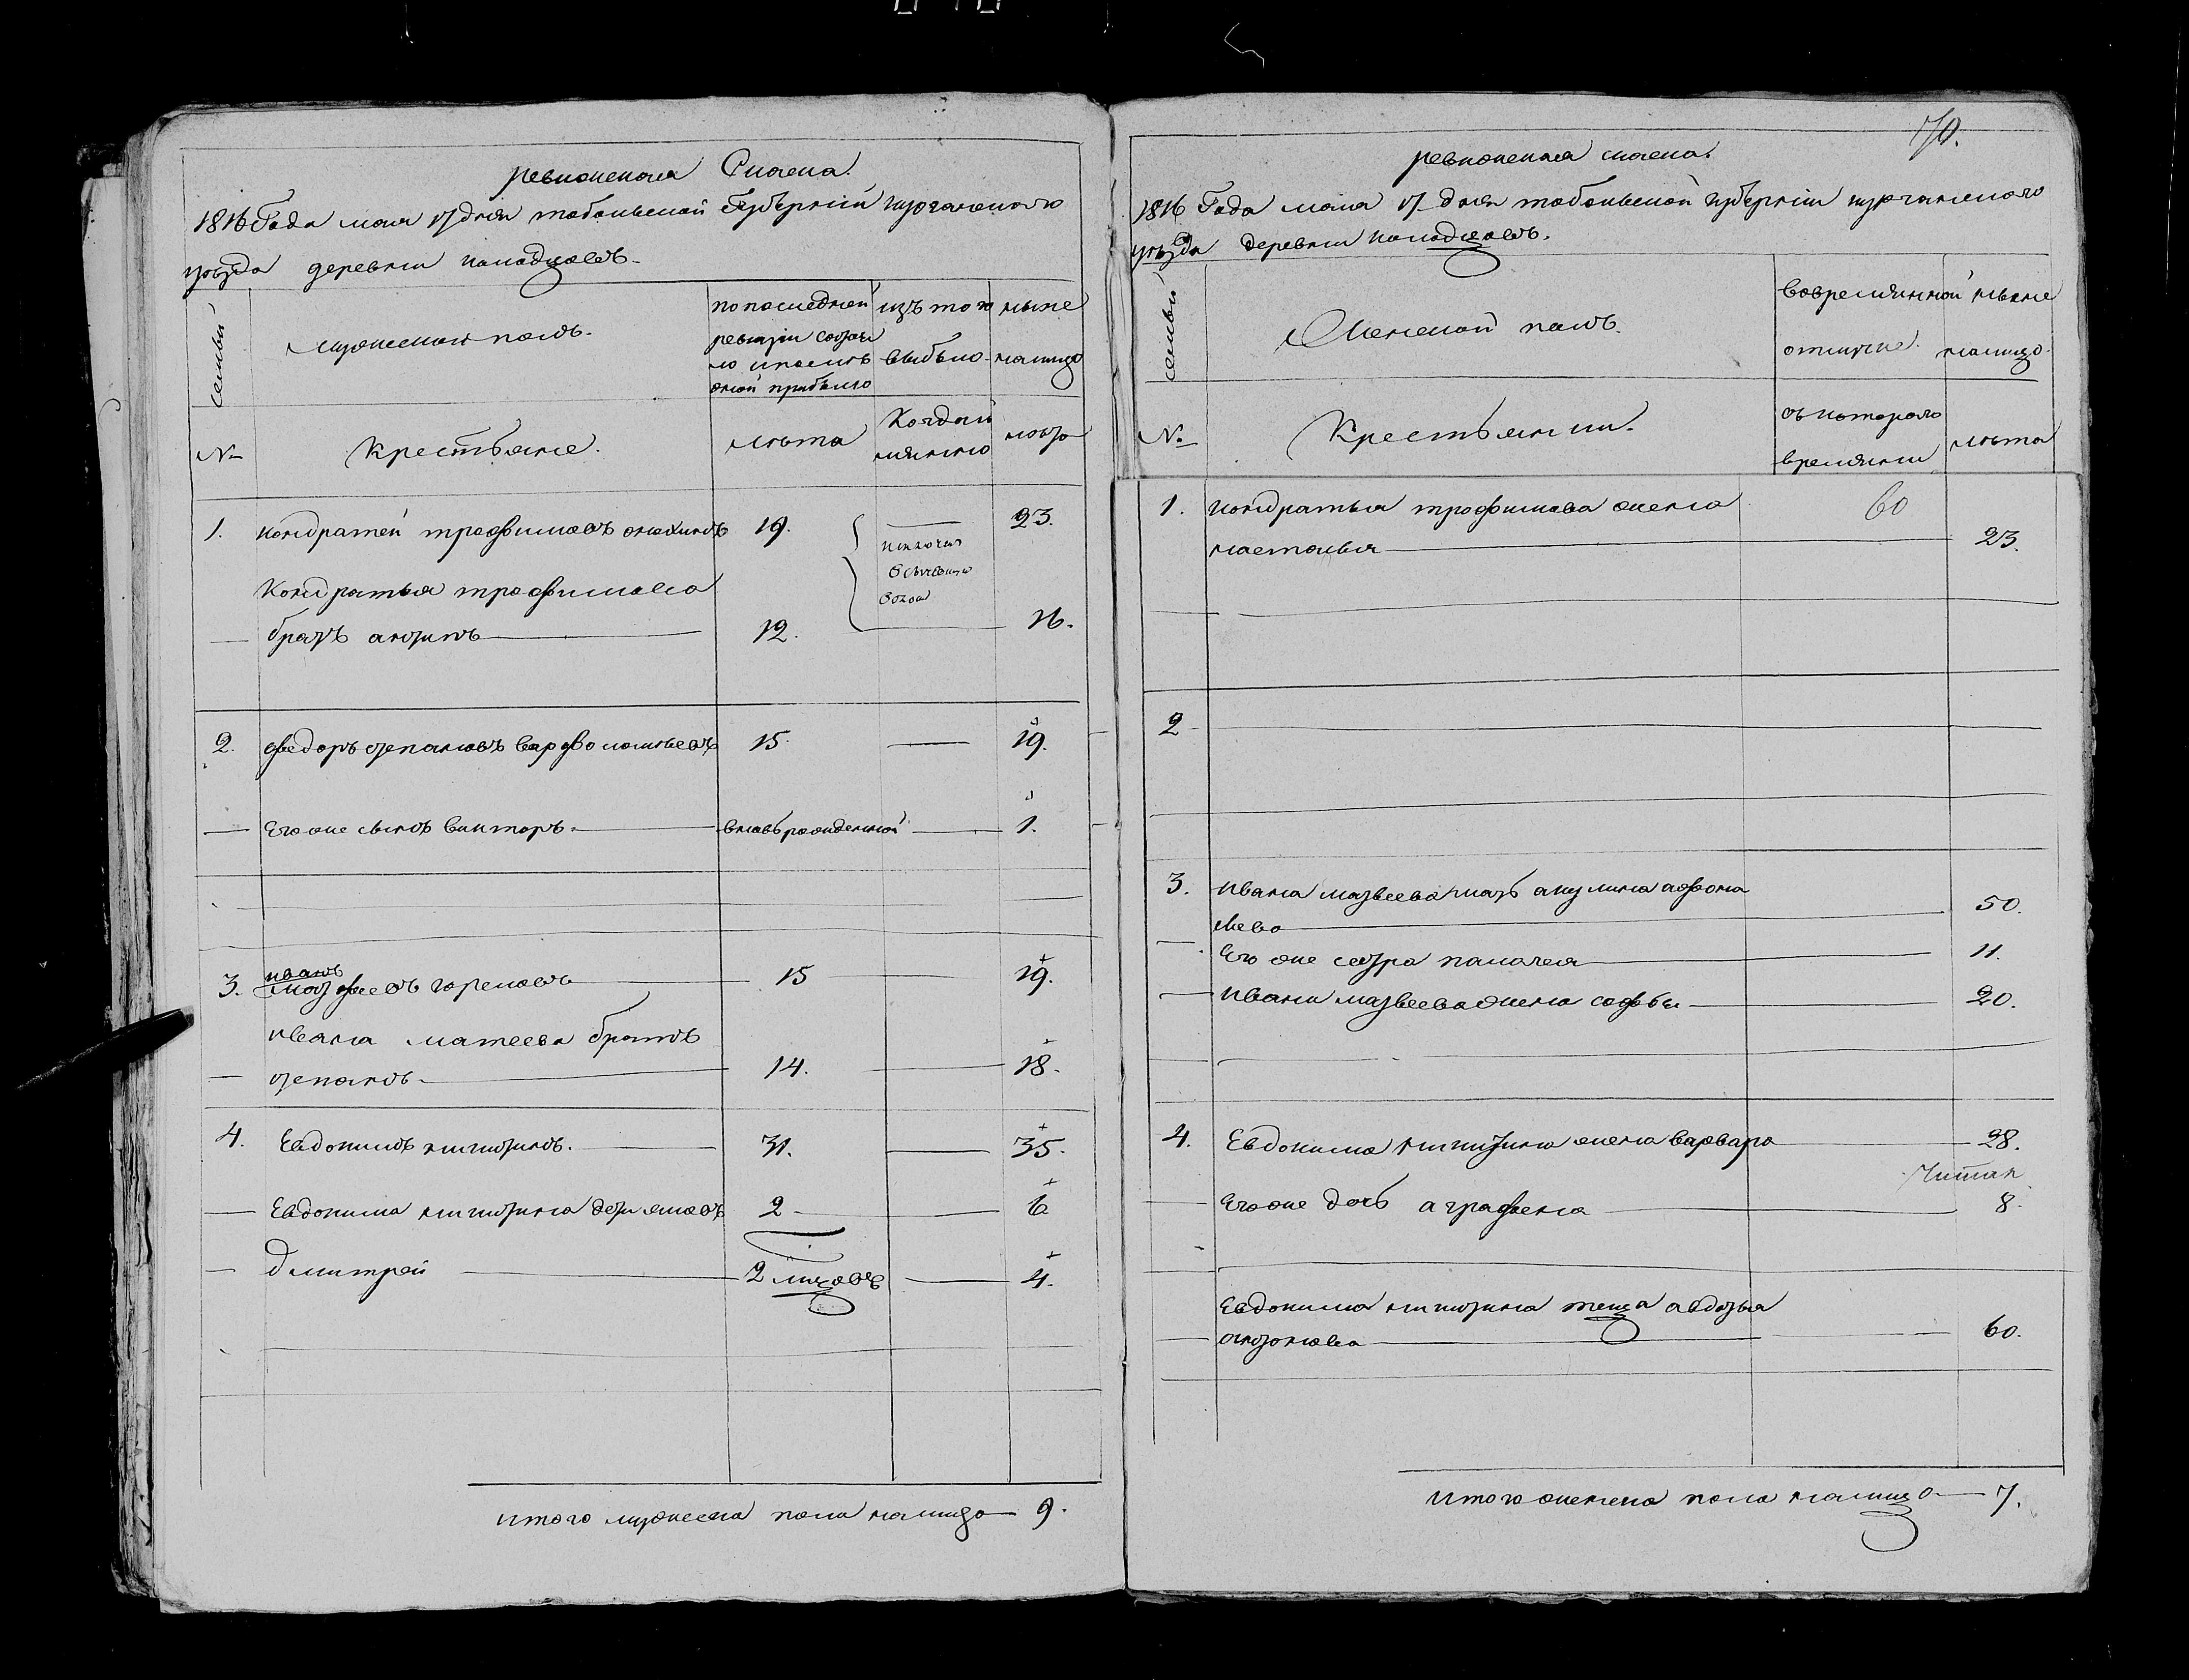 ревизская Сказка.
1816 Года маия 17 дня тобольской Губернии курганского
уезда деревни
семьи
мужеской полъ.
по последней
ревизии состоя
ло и после
оной прибыло
изъ того
выбыло
ныне
налицо
№
Крестьяне.
лета
Когда и
лета
1. кондратей трофимовъ 19. 23.
Кондратья трофимова
— братъ антипъ 12. 16.
2. федоръ степановъ варфоломеевъ 15. — 19.
— Его же сынъ викторъ. вновь рожденной — 1.
иванъ
3. матфеевъ 15 — 19.
ивана матвеева братъ
— степанъ. 14. — 18.
4. Евдокимъ никитинъ. 31. — 35.
— Евдокима никитина дети яковъ 2 — 6
— дмитрей 2 — 4.
итого мужеска пола налицо — 9.
70.
ревизская сказка.
1816 Года маия 17 дня тобольской губернии курганского
уезда деревни
семьи
Женской полъ.
во временной
отлучке.
ныне
налицо.
№
Крестьянки.
съ которого
времяни
лета
1. кондратья трофимова жена 60
настасья 23.
2
3. ивана матвеева мать акулина афона
сьева 50.
— Его же сестра палагея 11.
— ивана матвеева жена софья 20.
4. Евдокима никитина жена варвара 28.
— Его же дочь аграфена 8.
Евдокима никитина теща авдотья
— антонова 60.
итого женска пола налицо — 7.